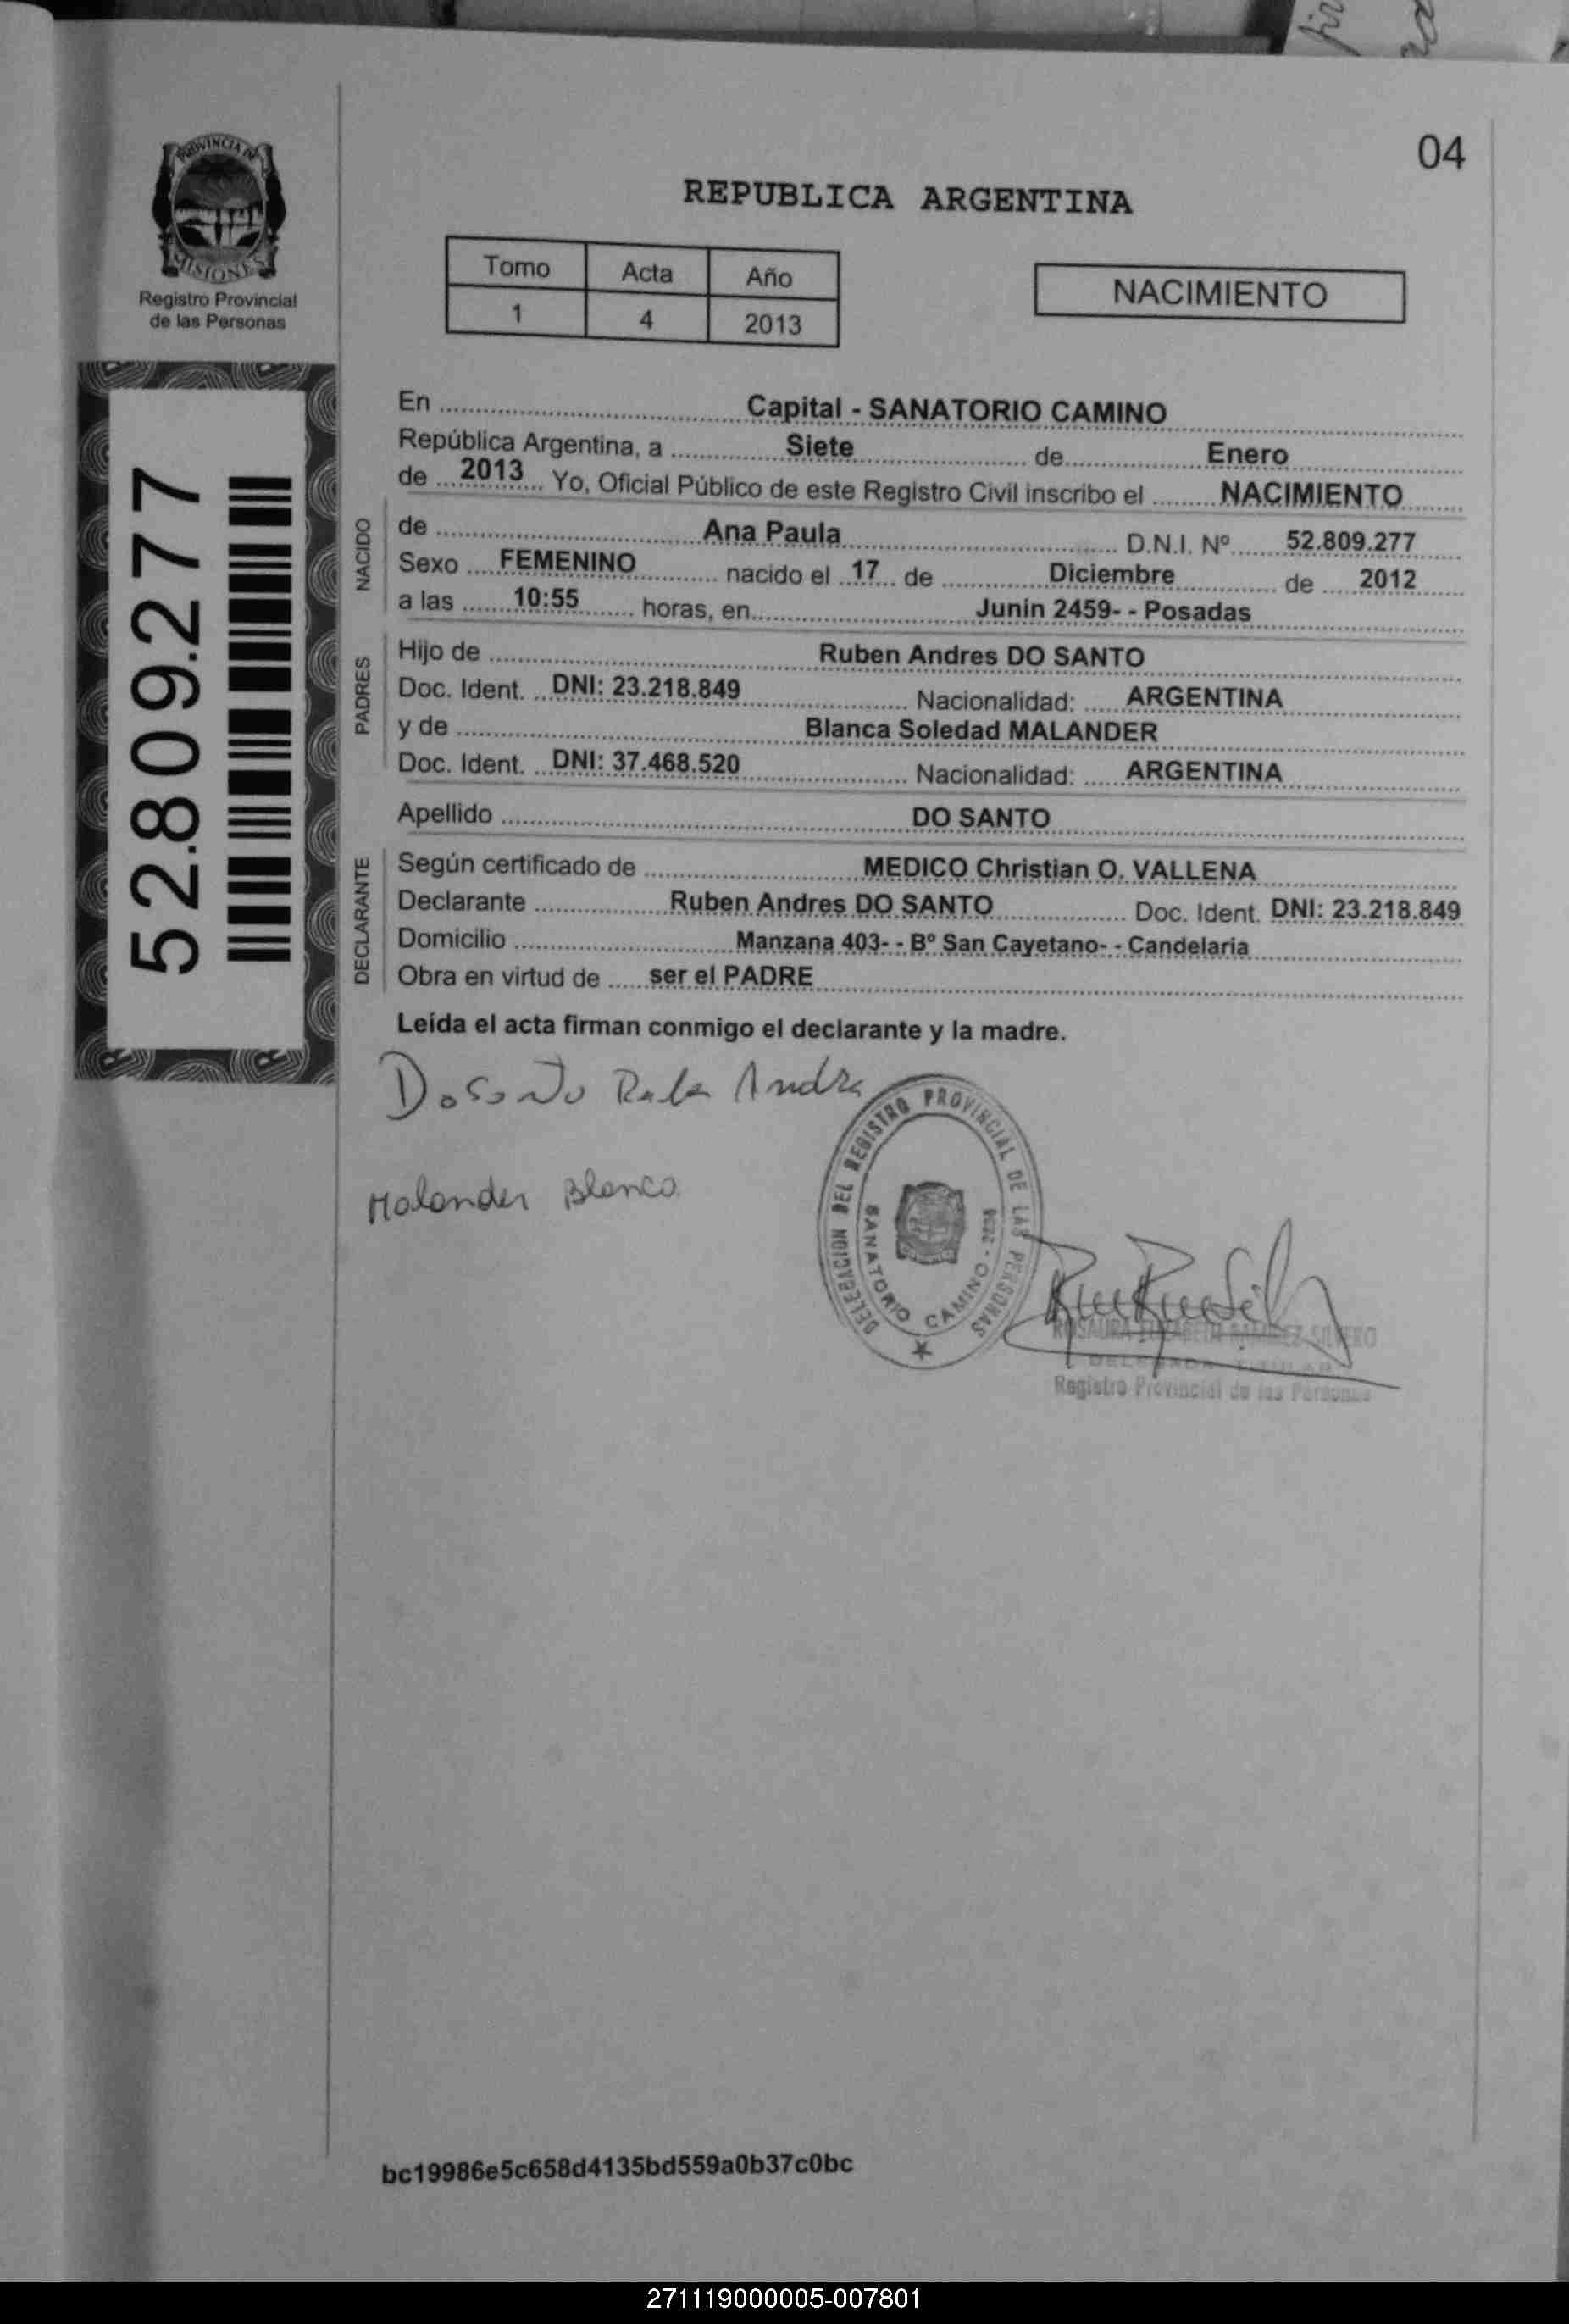 04
PROVINCIA DE
MISIONES
Registro Provincial
de las Personas
REPUBLICA ARGENTINA
Tomo Acta Año
1 4 2013
NACIMIENTO
52.809.277
En Capital - SANATORIO CAMINO
República Argentina, a Siete de Enero
de 2013 Yo, Oficial Público de este Registro Civil inscribo el NACIMIENTO
NACIDO
de Ana Paula D.N.I. Nº 52.809.277
Sexo FEMENINO nacido el 17 de Diciembre de 2012
a las 10:55 horas, en Junin 2459- - Posadas
PADRES
Hijo de Ruben Andres DO SANTO
Doc. Ident. DNI: 23.218.849 Nacionalidad: ARGENTINA
y de Blanca Soledad MALANDER
Doc. Ident. DNI: 37.468.520 Nacionalidad: ARGENTINA
Apellido DO SANTO
DECLARANTE
Según certificado de MEDICO Christian O. VALLENA
Declarante Ruben Andres DO SANTO Doc. Ident. DNI: 23.218.849
Domicilio Manzana 403- - Bº San Cayetano- - Candelaria
Obra en virtud de ser el PADRE
Leída el acta firman conmigo el declarante y la madre.
Malander Blanca
DELEGACION DEL REGISTRO PROVINCIAL DE LAS PERSONAS
SANATORIO CAMINO
DELEGADA TITULAR
Registro Provincial de las Personas
bc19986e5c658d4135bd559a0b37c0bc
271119000005-007801